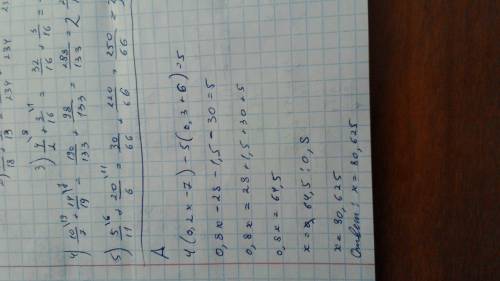 3) 7/2 + 3/16 = 32/16 + 3/16 =
4) 10/7 + 14/19 = 190/133 + 98/133 = 288/133 = 2
5) 5/11 + 20/6 = 30/66 + 220/66 = 250/66 =
А
4(0,2x-7)-5(0,3+6)=5
0,8x-28-1,5-30=5
0,8x=28+1,5+30+5
0,8x=64,5
x=64,5:0,8
x=80,625
Ответ: x=80,625